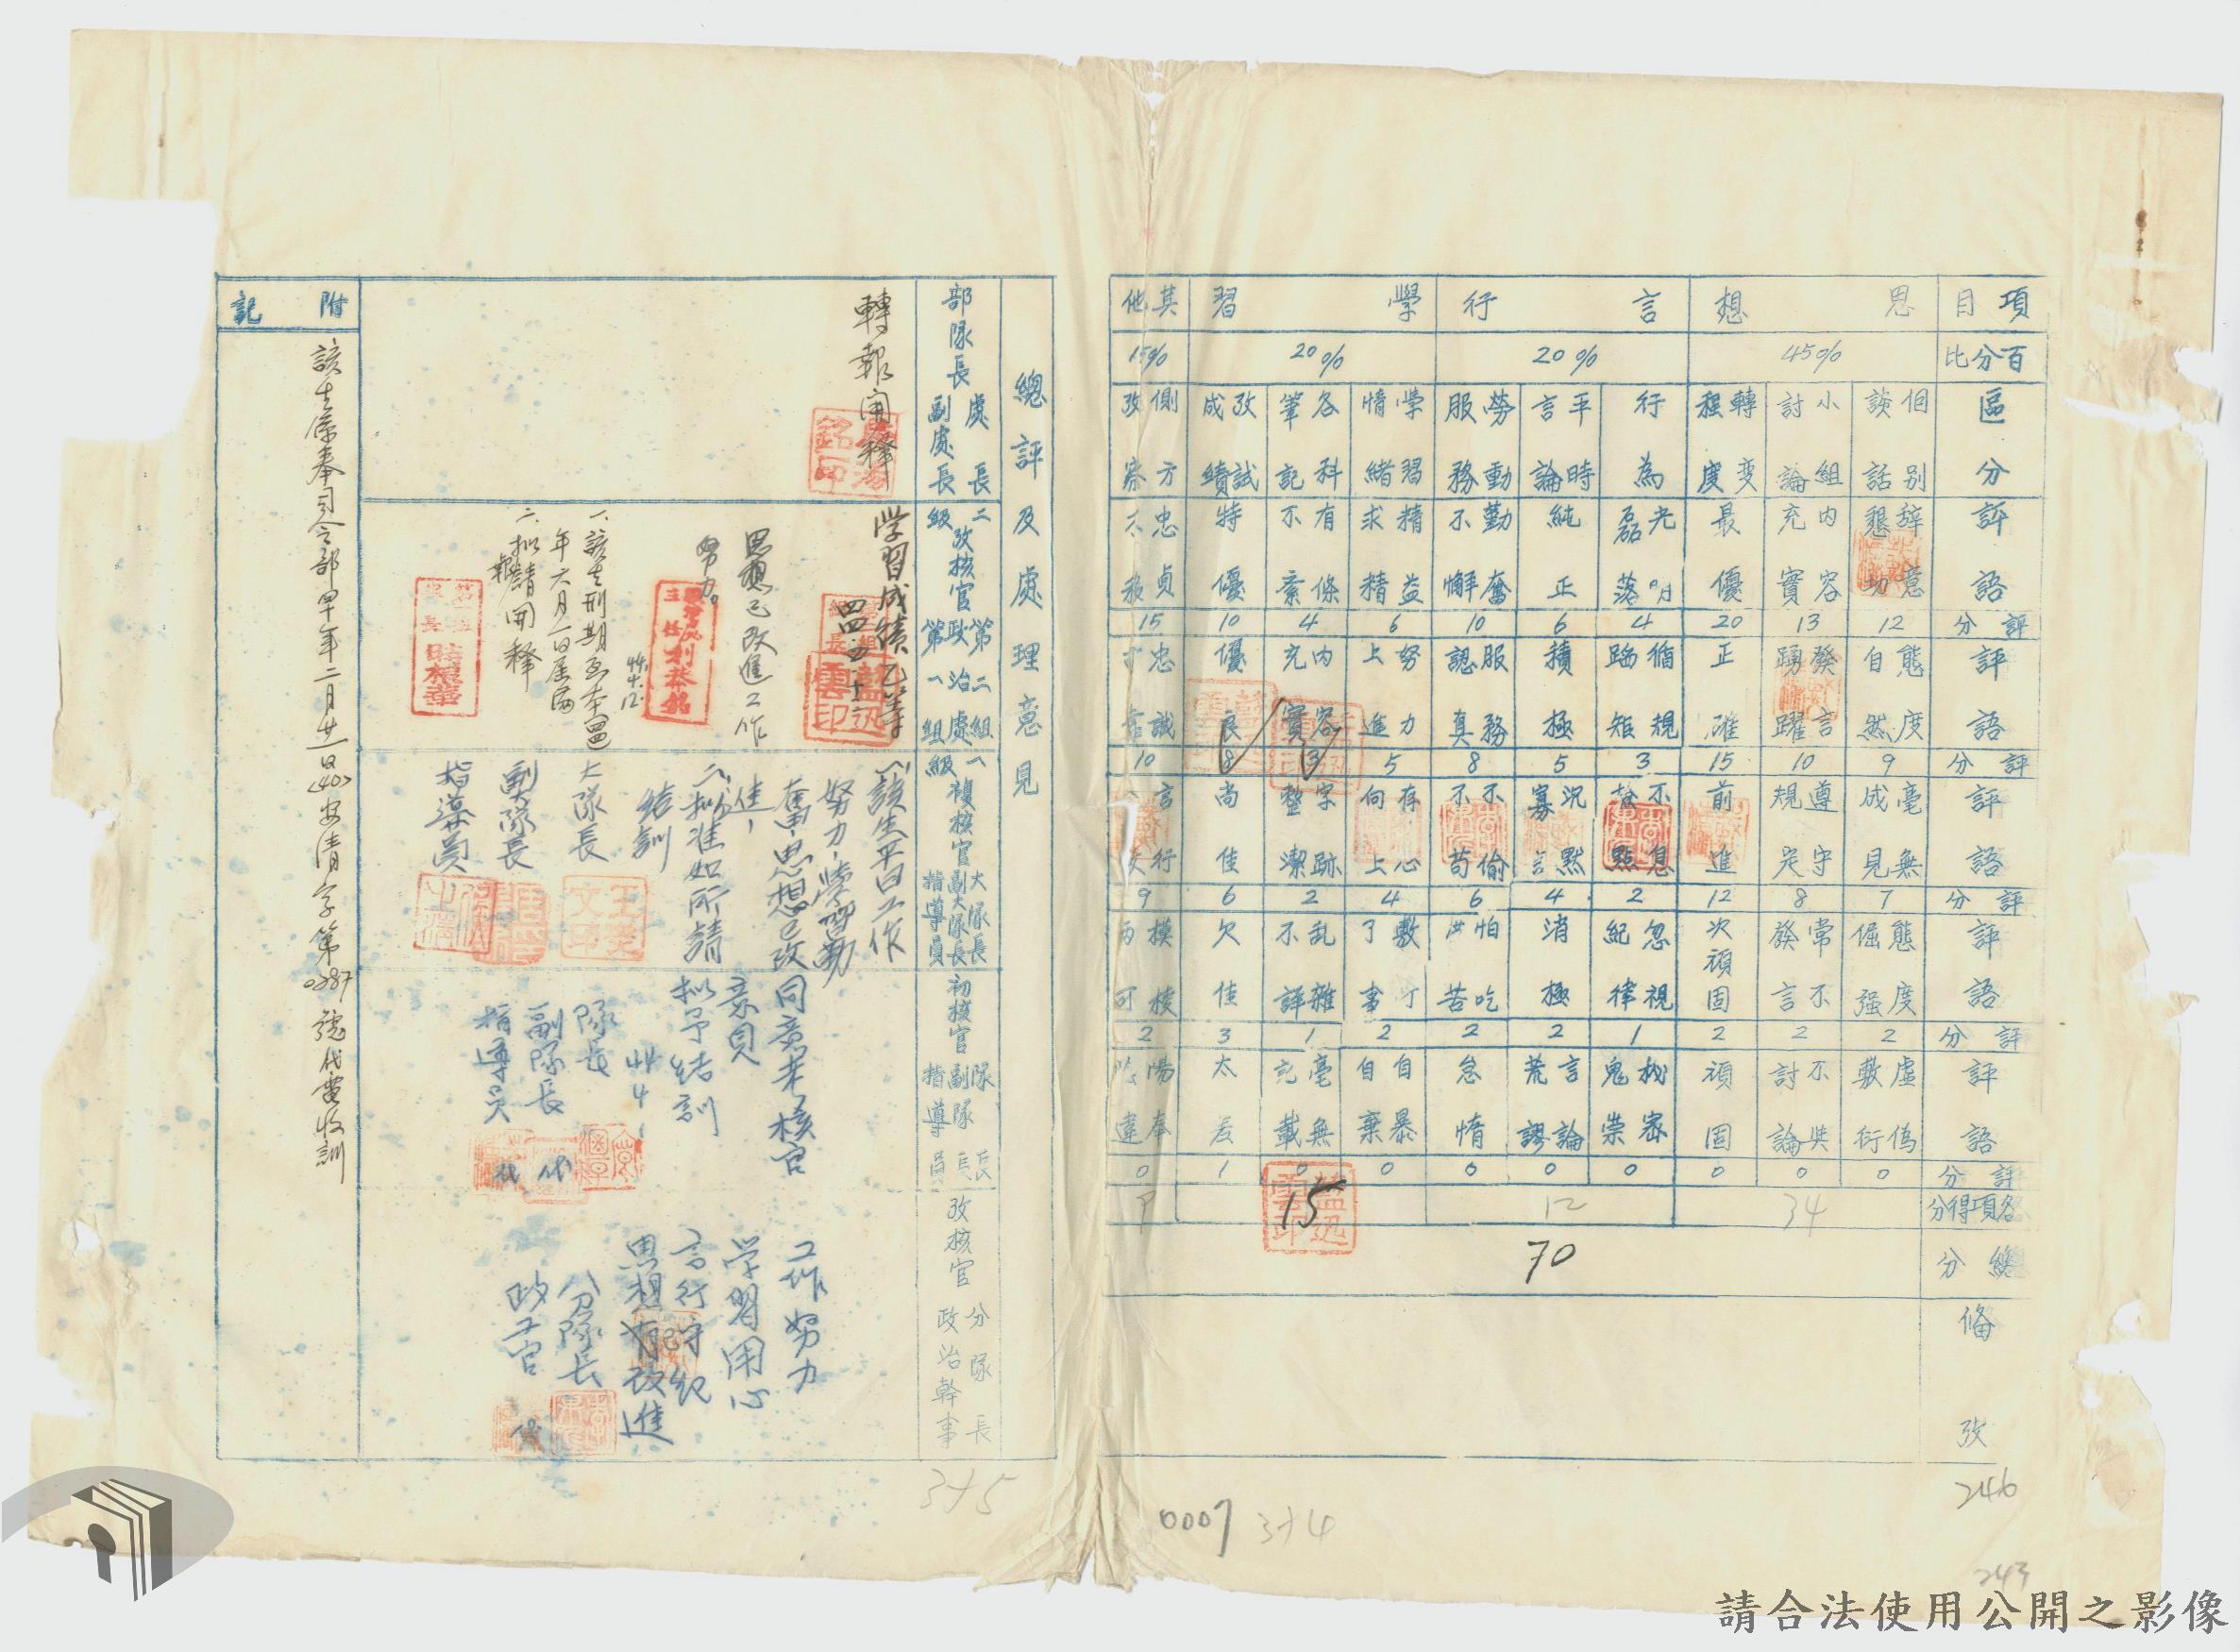 項目
思想
言行
學習
其他
百分比
45%
20%
20%
15%
區分
個別談話
小組討論
轉變程度
行為
平時言論
勞動服務
學習情緒
各科筆記
攷試成績
側方攷察
評語
辞意懇切
內容充實
最優
光明磊落
純正
勤奮不懈
精益求精
有條不紊
特優
忠貞不移
評分
12
13
20
4
6
10
6
4
10
15
評語
態度自然
發言踴躍
正確
循規蹈矩
積極
服務認真
努力上進
內容充實
優良
忠誠可靠
評分
9
10
15
3
5
8
5
3
8
10
評語
毫無成見
遵守規定
前進
不息
沉默寡言
不偷不苟
存心向上
字跡整潔
尚佳
言行
評分
7
8
12
2
4
6
4
2
6
9
評語
態度倔强
常不發言
次頑固
忽視紀律
消極
怕吃苦
敷衍了事
乱雜不詳
欠佳
模棱兩可
評分
2
2
2
1
2
2
2
1
3
2
評語
虛偽敷衍
不與討論
頑固
機密鬼祟
言論荒謬
怠惰
自暴自棄
毫無記載
太差
陽奉陰違
評分
0
0
0
0
0
0
0
0
1
0
各項得分
34
12
15
9
總分
70
備攷
246
243
0007
314
總評及處理意見
部隊長 處長 副處長
轉報開釋
二級攷核官 第二組 政治處 第一組
学習成績乙等
四四 四 十二
思想已改進工作
努力。
44.4.12.
一、該生刑期至本四四
年六月一日屆滿
二、擬請開釋
一級複核官 大隊長 副大隊長 指導員
一、該生平日工作
努力,學習勤
奮,思想已改
進,
二、擬准如所請
結訓
大隊長
副隊長
指導員
初核官 隊長 副隊長 指導員
同意考核官
意見
擬予結訓
隊長
副隊長 代
指導員 代
攷核官 分隊長 政治幹事
工作努力
学習用心
言行守紀
思想有改進
分隊長
政工官 代
附記
該生係奉司令部 年二月廿一日(40)安清字第0287號代電收訓
315
請合法使用公開之影像